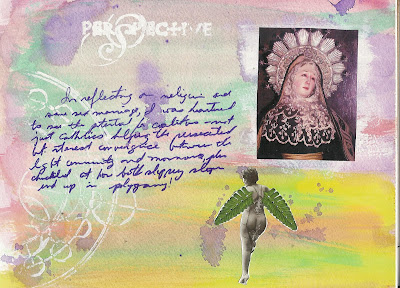 PERSPECTIVE
In reflecting on religion and
same sex marriage, I was heartened
to see the
just Catholics helping the persecuted
but interest convergence between the
lgbt community and mormons, plus
chuckled at how both slippery slopes
end up in polygamy!